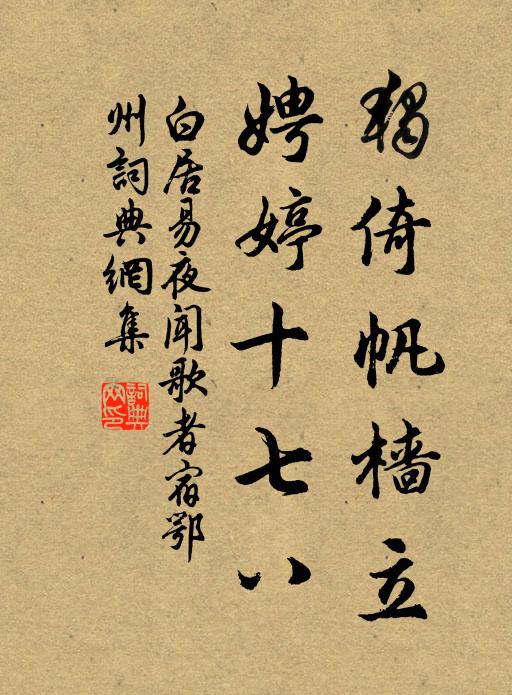 獨倚帆檣立
娉婷十七八
白居易夜聞歌者宿鄂
州詞典網集
詞典网印